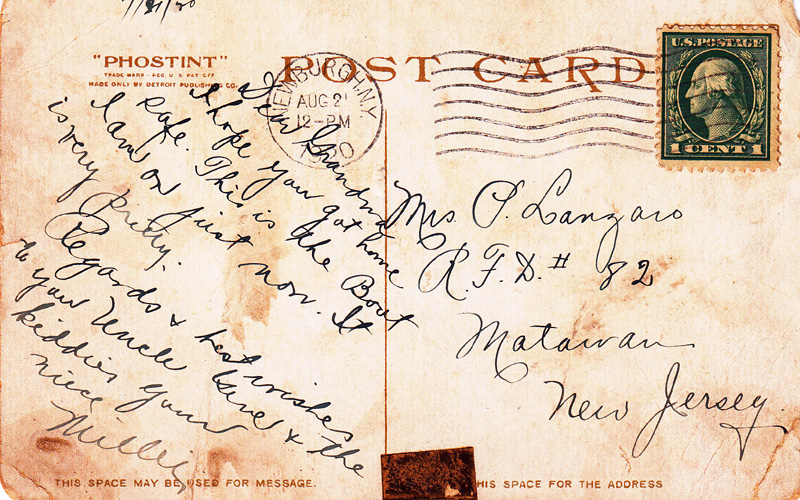 "PHOSTINT"
TRADE MARK - REG. U.S. PAT. OFF.
MADE ONLY BY DETROIT PUBLISHING CO.
POST CARD
NEWBURGH, N.Y.
AUG 21
12-PM
U.S. POSTAGE
1 CENT 1
Dear Grandma
I hope you got home
safe. This is the Boat
I am on just now. It
is very pretty.
Regards & best wishes
to your Uncle & the
kiddies your
niece
Millie
Mrs P. Lanzaro
R.F.D. # 82
Matawan
New Jersey.
THIS SPACE MAY BE USED FOR MESSAGE.
HIS SPACE FOR THE ADDRESS